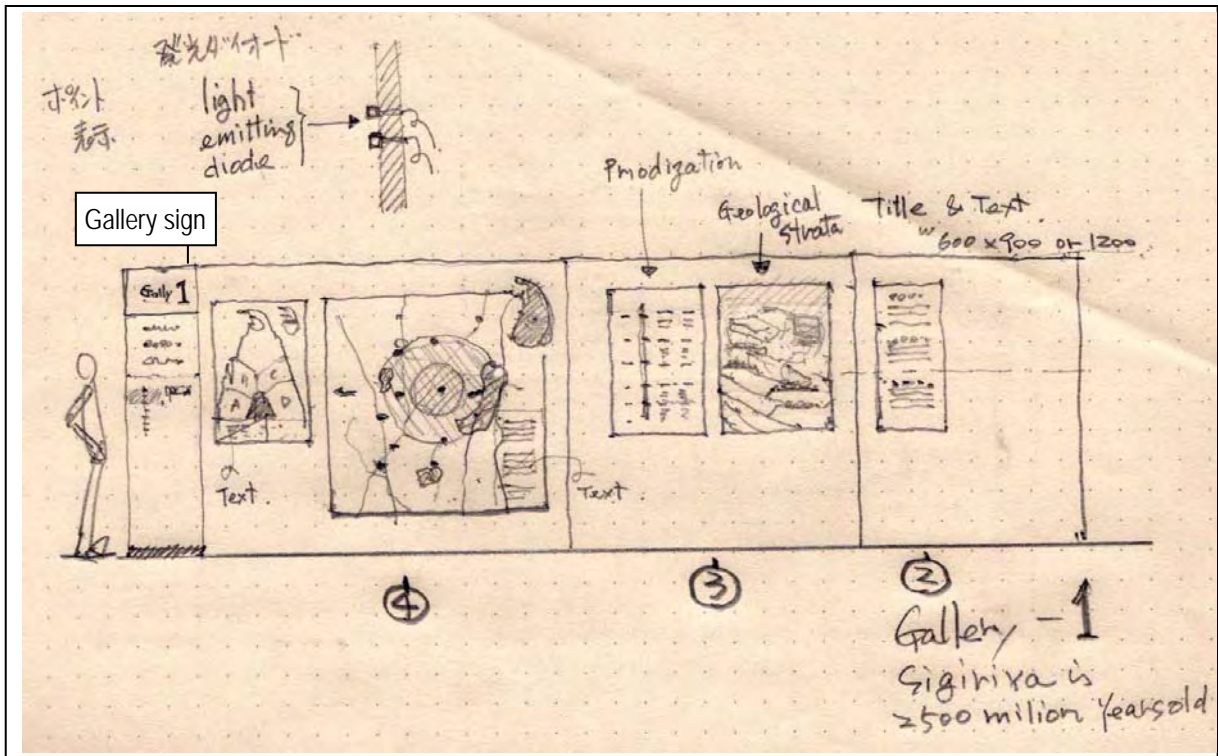 発光ダイオード
ポイント
表示
light
emitting
diode
Gallery sign
Gally 1
A
B
C
D
Text.
Text.
Pmodization
Geological
strata
Title & Text
W 600 x 900 or 1200
④
③
②
Gallery - 1
Sigiriya is
2500 milion years old